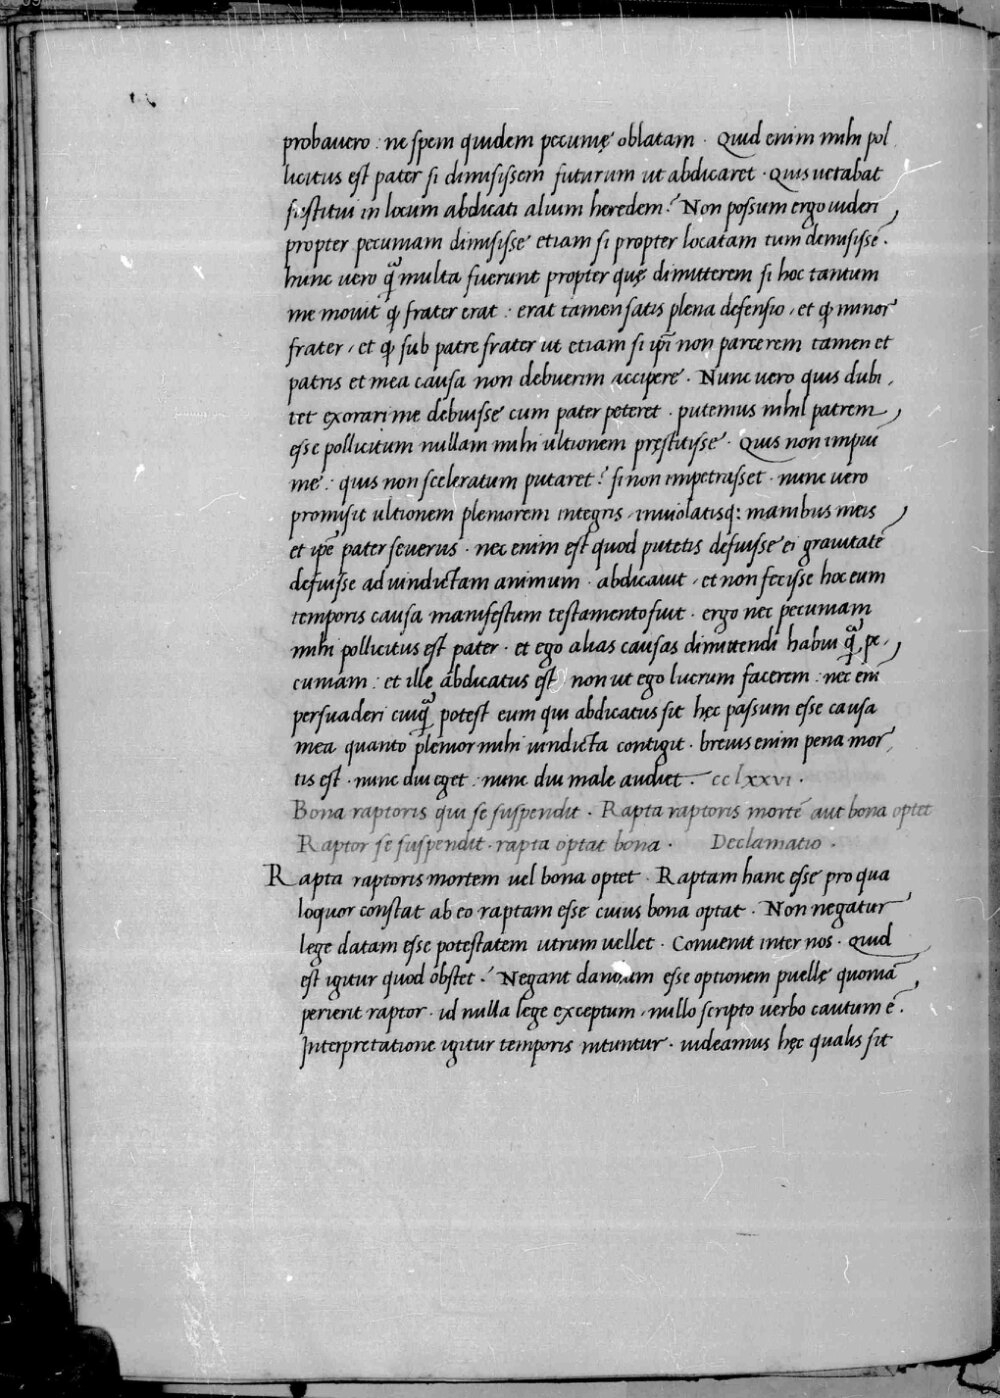 probauero : ne spem quidem pecunię oblatam . Quid enim mihi pol
licitus est pater si dimisissem futurum ut abdicaret . Quis uetabat
substitui in locum abdicati alium heredem ? Non possum ergo uideri
propter pecuniam dimisisse etiam si propter locatam tum demisisse .
hunc uero qᷓ multa fuerunt propter quę dimitterem si hoc tantum
me mouit ꝙ frater erat : erat tamen satis plena defensio , et ꝙ minor
frater , et ꝙ sub patre frater ut etiam si ip̄i non parcerem tamen et
patris et mea causa non debuerim accipere . Nunc uero quis dubi
tet exorari me debuisse cum pater peteret . putemus nihil patrem
esse pollicitum nullam mihi ultionem pręstitisse . Quis non impiū
me : quis non sceleratum putaret ? si non impetrasset . nunc uero
promisit ultionem pleniorem integris , inuiolatisq: manibus meis
et ip̄e pater seuerus . nec enim est quod putetis defuisse ei grauitatē
defuisse ad uindictam animum . abdicauit , et non fecisse hoc eum
temporis causa manifestum testamento fuit . ergo nec pecuniam
mihi pollicitus est pater . et ego alias causas dimittendi habui qᷓ pe
cuniam : et ille abdicatus est non ut ego lucrum facerem : nec eni̅
persuaderi cuiqᷓ potest eum qui abdicatus sit hęc passum esse causa
mea quanto plenior mihi uindicta contigit . breuis enim pena mor
tis est . nunc diu eget : nunc diu male audiet . cclxxvi .
Bona raptoris qui se suspendit . Rapta raptoris mortē aut bona optet
Raptor se suspendit . rapta optat bona . Declamatio .
Rapta raptoris mortem uel bona optet . Raptam hanc esse pro qua
loquor constat ab eo raptam esse cuius bona optat . Non negatur
lege datam esse potestatem utrum uellet . Conuenit inter nos . quid
est igitur quod obstet ? Negant dandam esse optionem puellę quoniā
perierit raptor . id nulla lege exceptum , nullo scripto uerbo cautum ē .
Interpretatione igitur temporis nituntur . uideamus hęc qualis sit